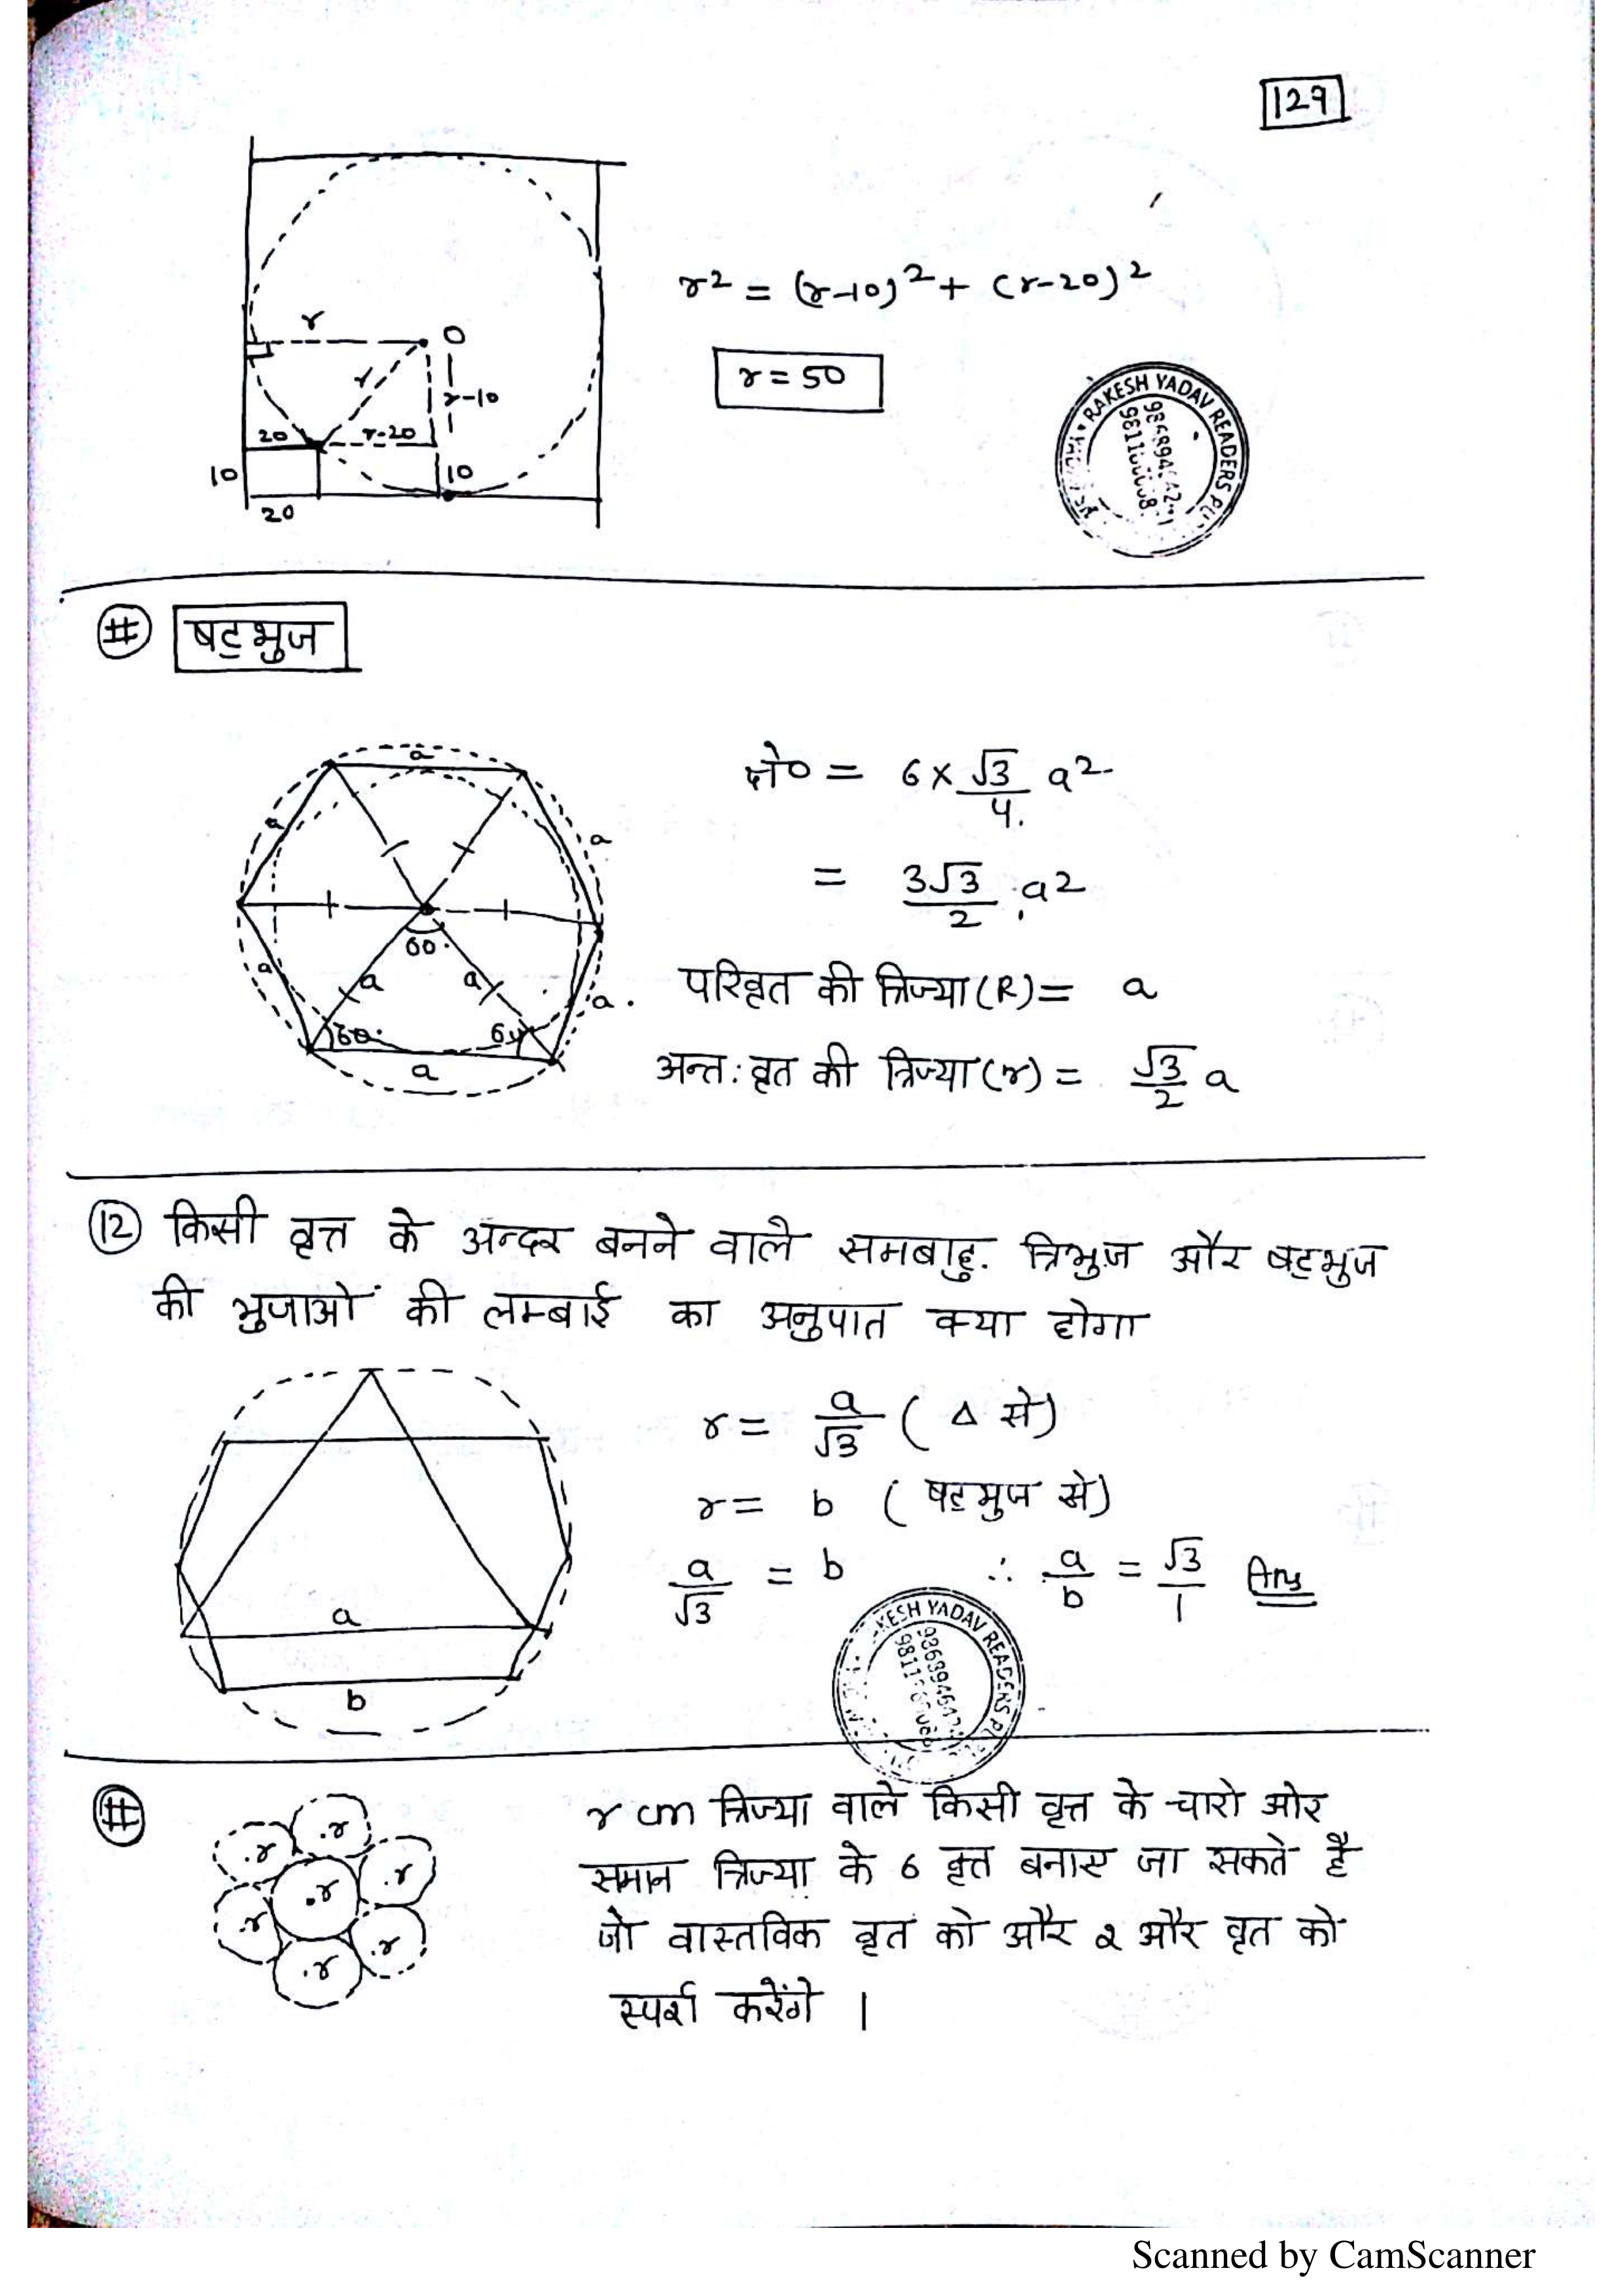 129
r² = (r-10)² + (r-20)²
r = 50
r
O
r
r-10
20
r-20
10
10
20
# षट्भुज
a
a
a
60
a
a
a
a
60
60
a
क्षे० = 6 × √3/4 a²
= 3√3/2 a²
परिवृत की त्रिज्या (R) = a
अन्तः वृत की त्रिज्या (r) = √3/2 a
12 किसी वृत्त के अन्दर बनने वाले समबाहु त्रिभुज और षट्भुज
की भुजाओं की लम्बाई का अनुपात क्या होगा
r = a/√3 (Δ से)
r = b (षट्भुज से)
a/√3 = b ∴ a/b = √3/1 Ans
a
b
RAKESH YADAV READERS
KESH YADAV READERS
#
.r
.r
.r
.r
.r
.r
.r
r cm त्रिज्या वाले किसी वृत्त के चारो ओर
समान त्रिज्या के 6 वृत्त बनाए जा सकते है
जो वास्तविक वृत को और 2 और वृत को
स्पर्श करेंगे ।
Scanned by CamScanner